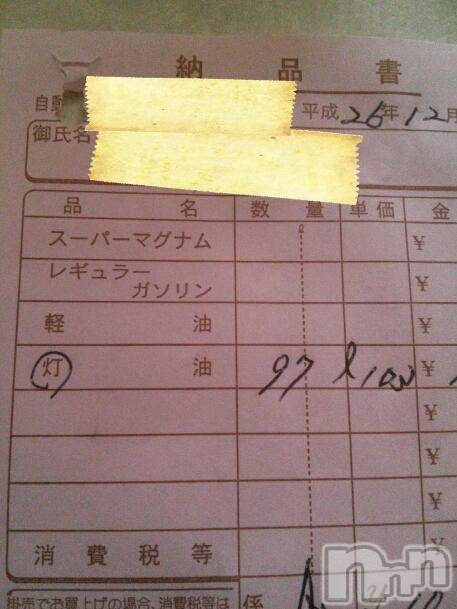 納品書
自動 平成26年12月
御氏名
品名 数量 単価 金
スーパーマグナム ¥
レギュラーガソリン ¥
軽油 ¥
灯油 97 ℓ 100 ¥
¥
¥
¥
消費税等 ¥
掛売でお買上げの場合、消費税等は 係